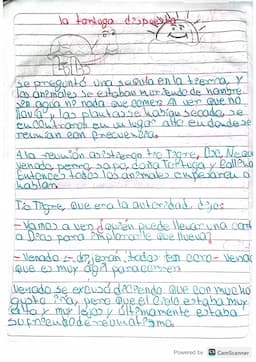 la tortuga dispuesta
se preguntó una sequia en la tierra, y
los animales se estaban muriendo de hambre
sin agua ni nada que comer. Al ver que no
llovia y las plantas se habian secado, se
encontraron en un lugar alto en donde se
reunian con frecuencia.
A la reunión asistieron tio Tigre,
venado, perro, sapo, doña Tortuga y
Entonces todos los animales empezaron a
hablar.
Tio Tigre, que era la autoridad, dijo:
- Vamos a ver ¿quién puede llevar una carta
a Dios para implorarle que llueva?
- Venado - dijeron todos en coro -
que es muy agil para correr
Venado se excusó diciendo que con mucho
gusto iria, pero que el cielo estaba muy
alto y muy lejos y ultimamente estaba
sufriendo de reumatismo.
Powered by CS CamScanner